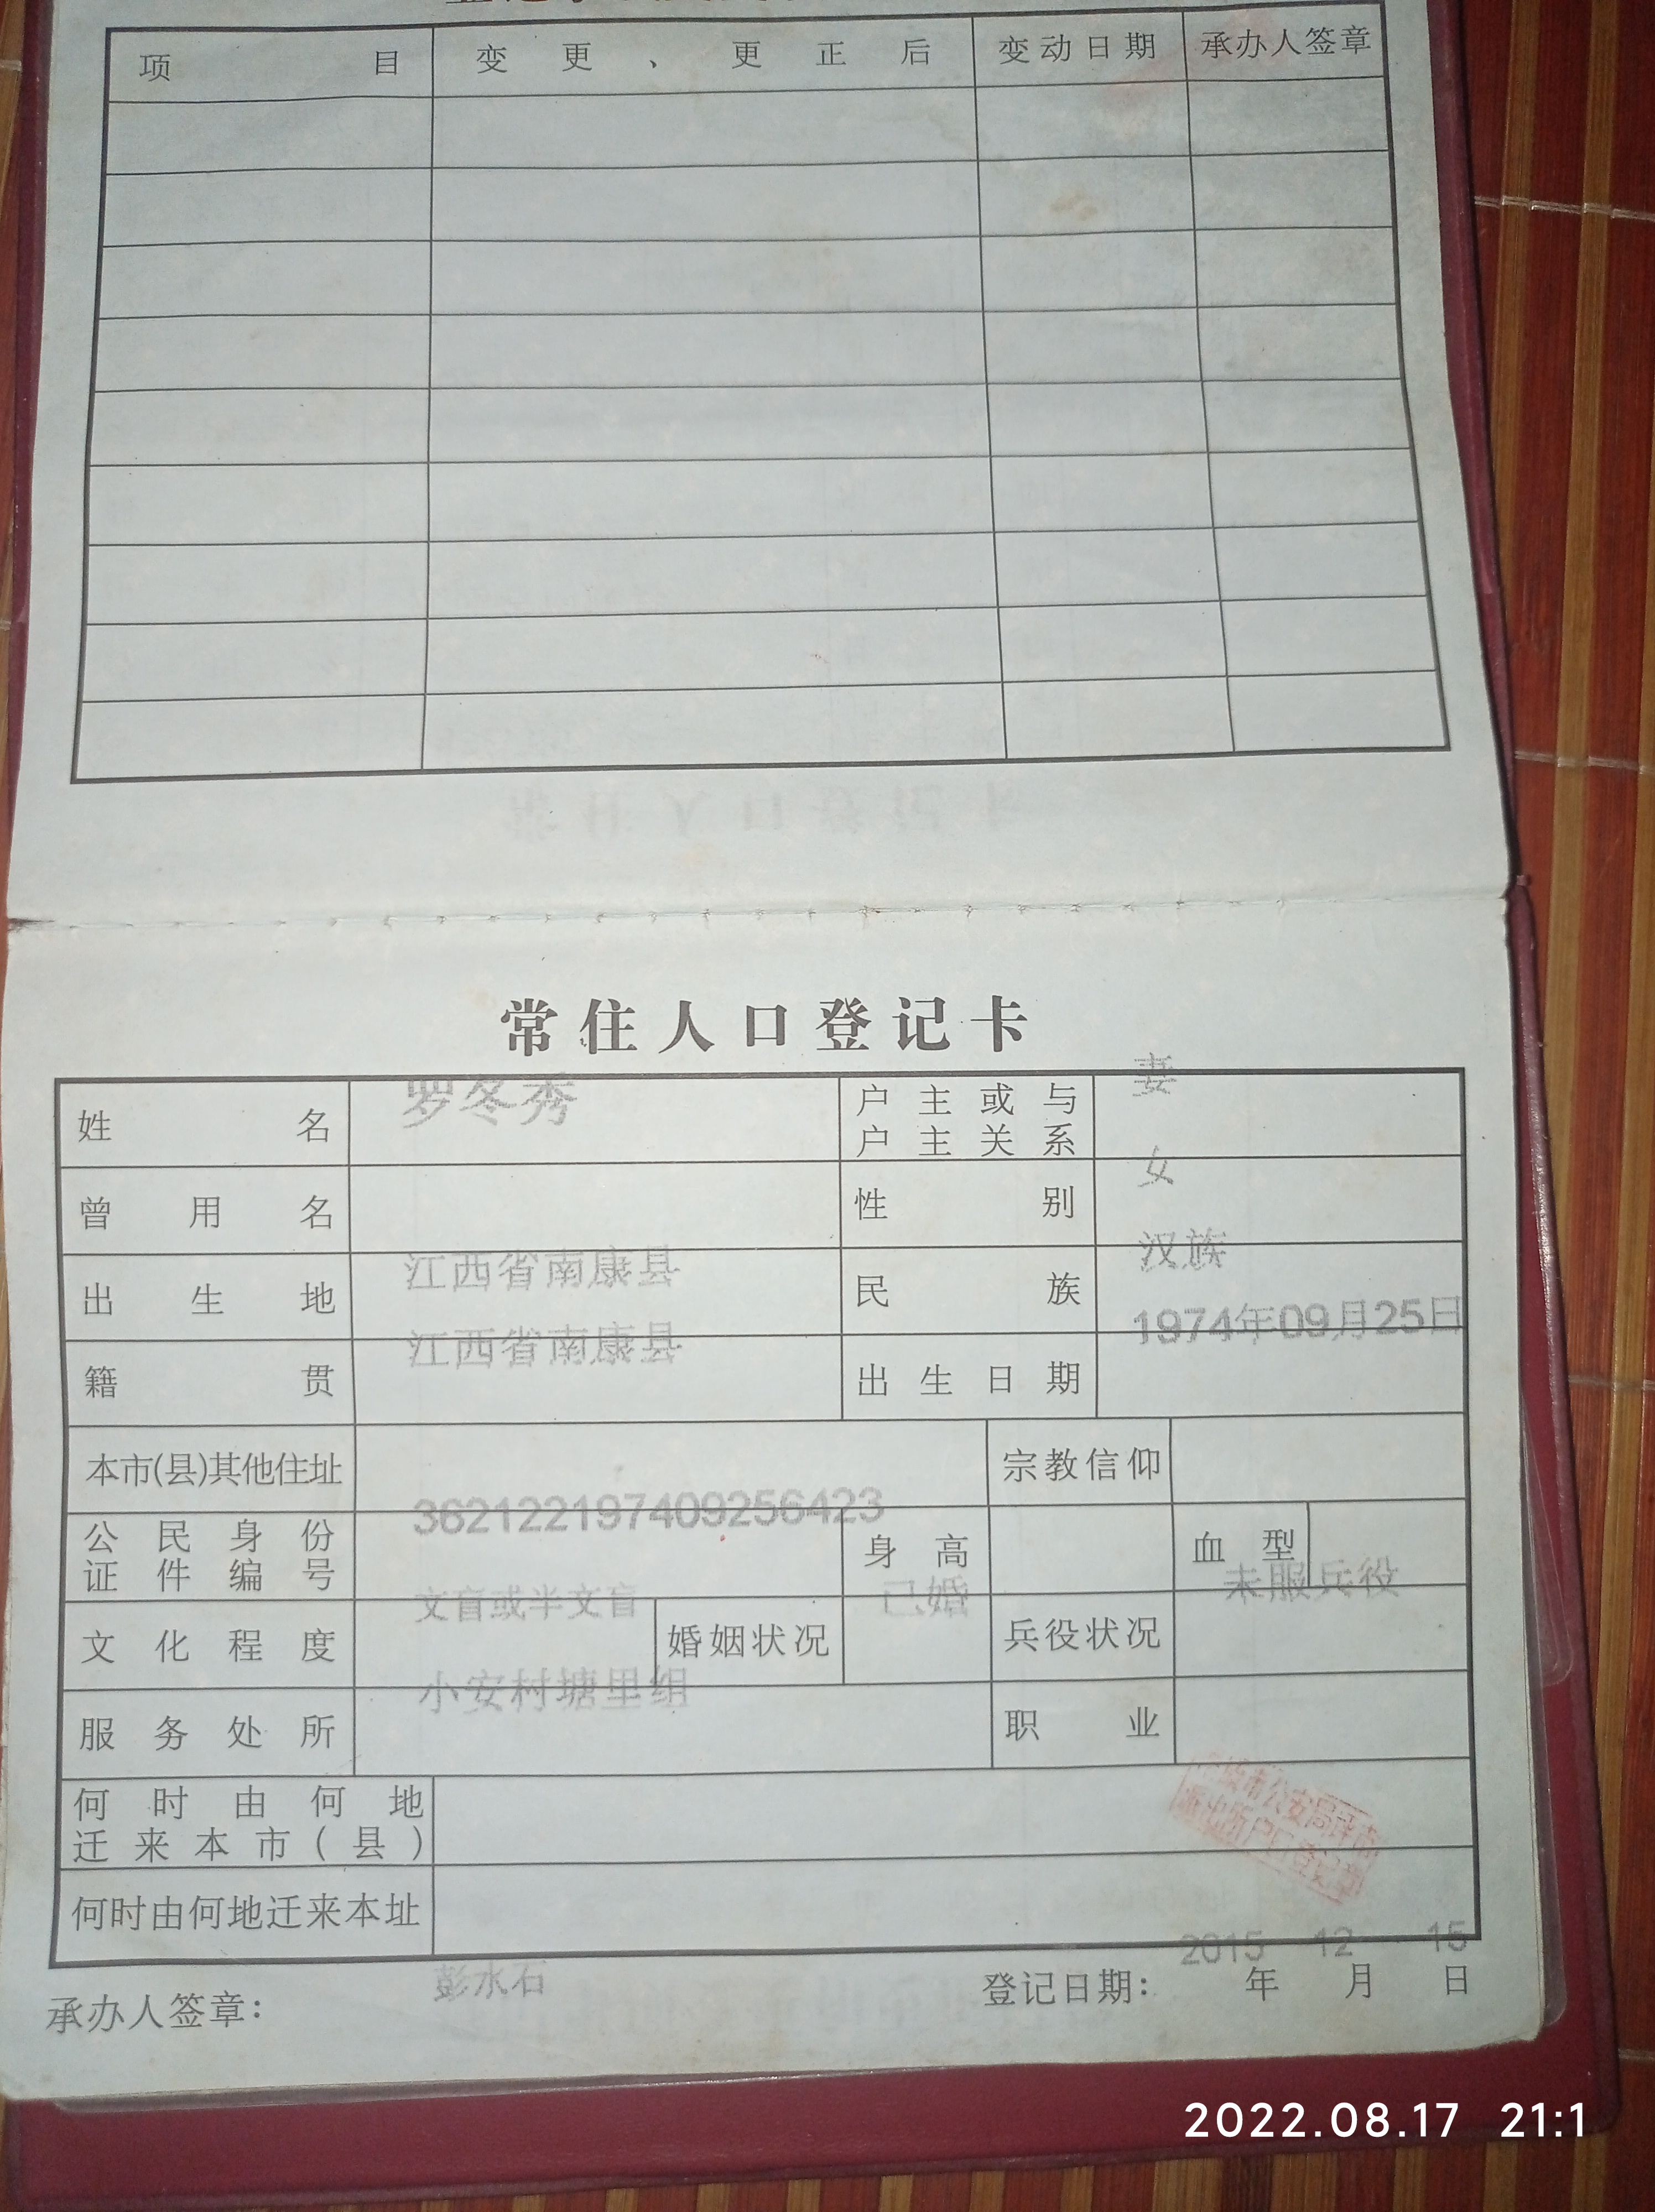 项目 变更、更正后 变动日期 承办人签章
常住人口登记卡
姓名 罗冬秀 户主或与户主关系 妻
曾用名 性别 女
出生地 江西省南康县 民族 汉族
籍贯 江西省南康县 出生日期 1974年09月25日
本市(县)其他住址 宗教信仰
公民身份证件编号 362122197409256423 身高 血型
文化程度 文盲或半文盲 婚姻状况 已婚 兵役状况 未服兵役
服务处所 小安村塘里组 职业
何时由何地迁来本市(县)
何时由何地迁来本址
派出所户口登记章
承办人签章: 彭水石 登记日期: 2015年12月15日
2022.08.17 21:1